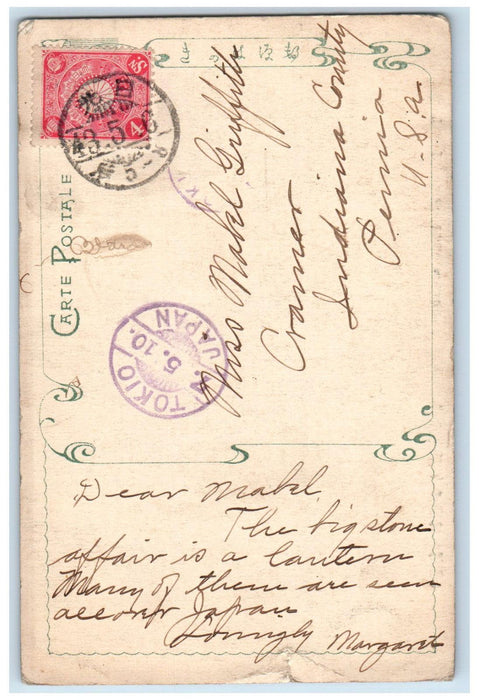 きかは便郵
CARTE POSTALE
4 Sn
43.5.8
TOKIO
5.10.
JAPAN
Miss Mabel Griffith
Cramer
Indiana County
Penna
U-S.a.
Dear Mabel,
The big stone
affair is a lantern
Many of them are seen
accour Japan
Lovingly Margaret